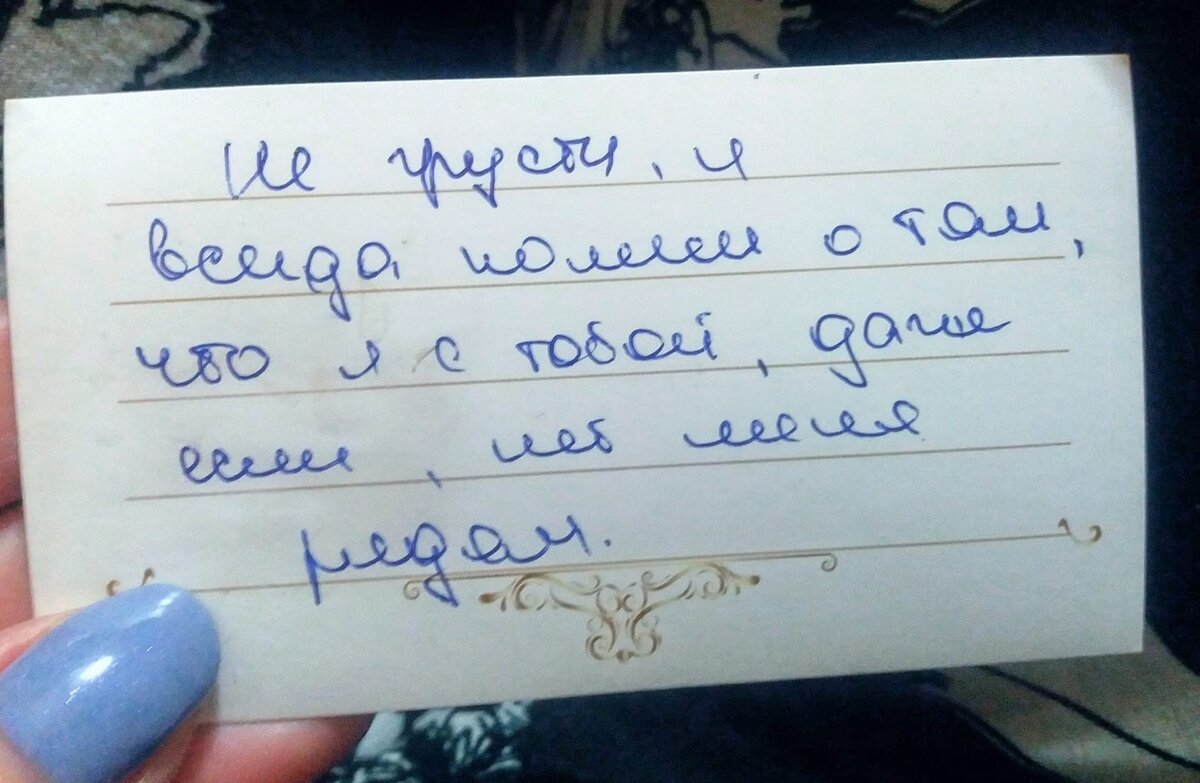 Не грусти, и
всегда помни о том,
что я с тобой, даже
если, нет меня
рядом.